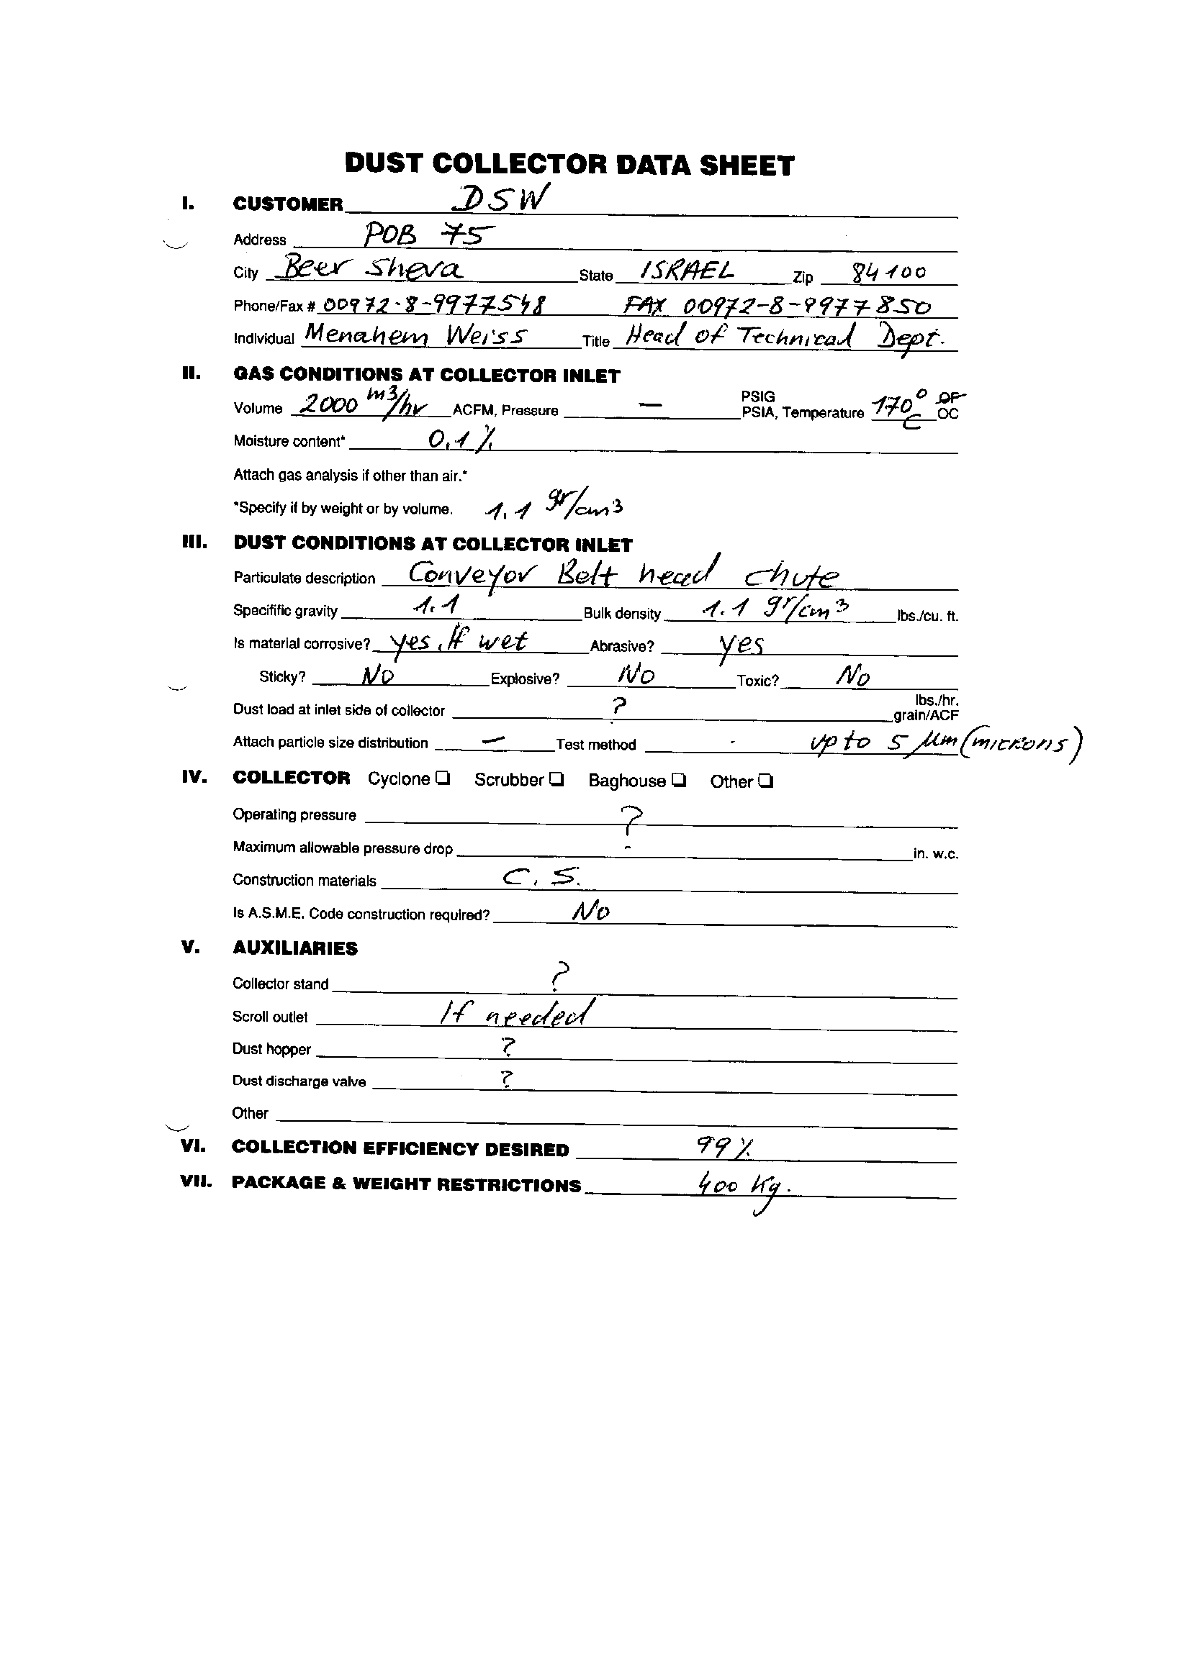 DUST COLLECTOR DATA SHEET
I. CUSTOMER DSW
Address POB 75
City Beer Sheva State ISRAEL Zip 84100
Phone/Fax # 00972-8-9977548 FAX 00972-8-9977850
Individual Menahem Weiss Title Head of Technical Dept.
II. GAS CONDITIONS AT COLLECTOR INLET
Volume 2000 m3/hr ACFM, Pressure — PSIG
PSIA, Temperature 170° C OF OC
Moisture content* 0,1%
Attach gas analysis if other than air.*
*Specify if by weight or by volume. 1,1 gr/cm3
III. DUST CONDITIONS AT COLLECTOR INLET
Particulate description Conveyor Belt head chute
Specifific gravity 1.1 Bulk density 1.1 gr/cm3 lbs./cu. ft.
Is material corrosive? yes, If wet Abrasive? yes
Sticky? No Explosive? No Toxic? No
Dust load at inlet side of collector ? lbs./hr.
grain/ACF
Attach particle size distribution — Test method - up to 5 µm (microns)
IV. COLLECTOR Cyclone ❏ Scrubber ❏ Baghouse ❏ Other ❏
Operating pressure ?
Maximum allowable pressure drop - in. w.c.
Construction materials C. S.
Is A.S.M.E. Code construction required? No
V. AUXILIARIES
Collector stand ?
Scroll outlet If needed
Dust hopper ?
Dust discharge valve ?
Other
VI. COLLECTION EFFICIENCY DESIRED 99%
VII. PACKAGE & WEIGHT RESTRICTIONS 400 Kg.